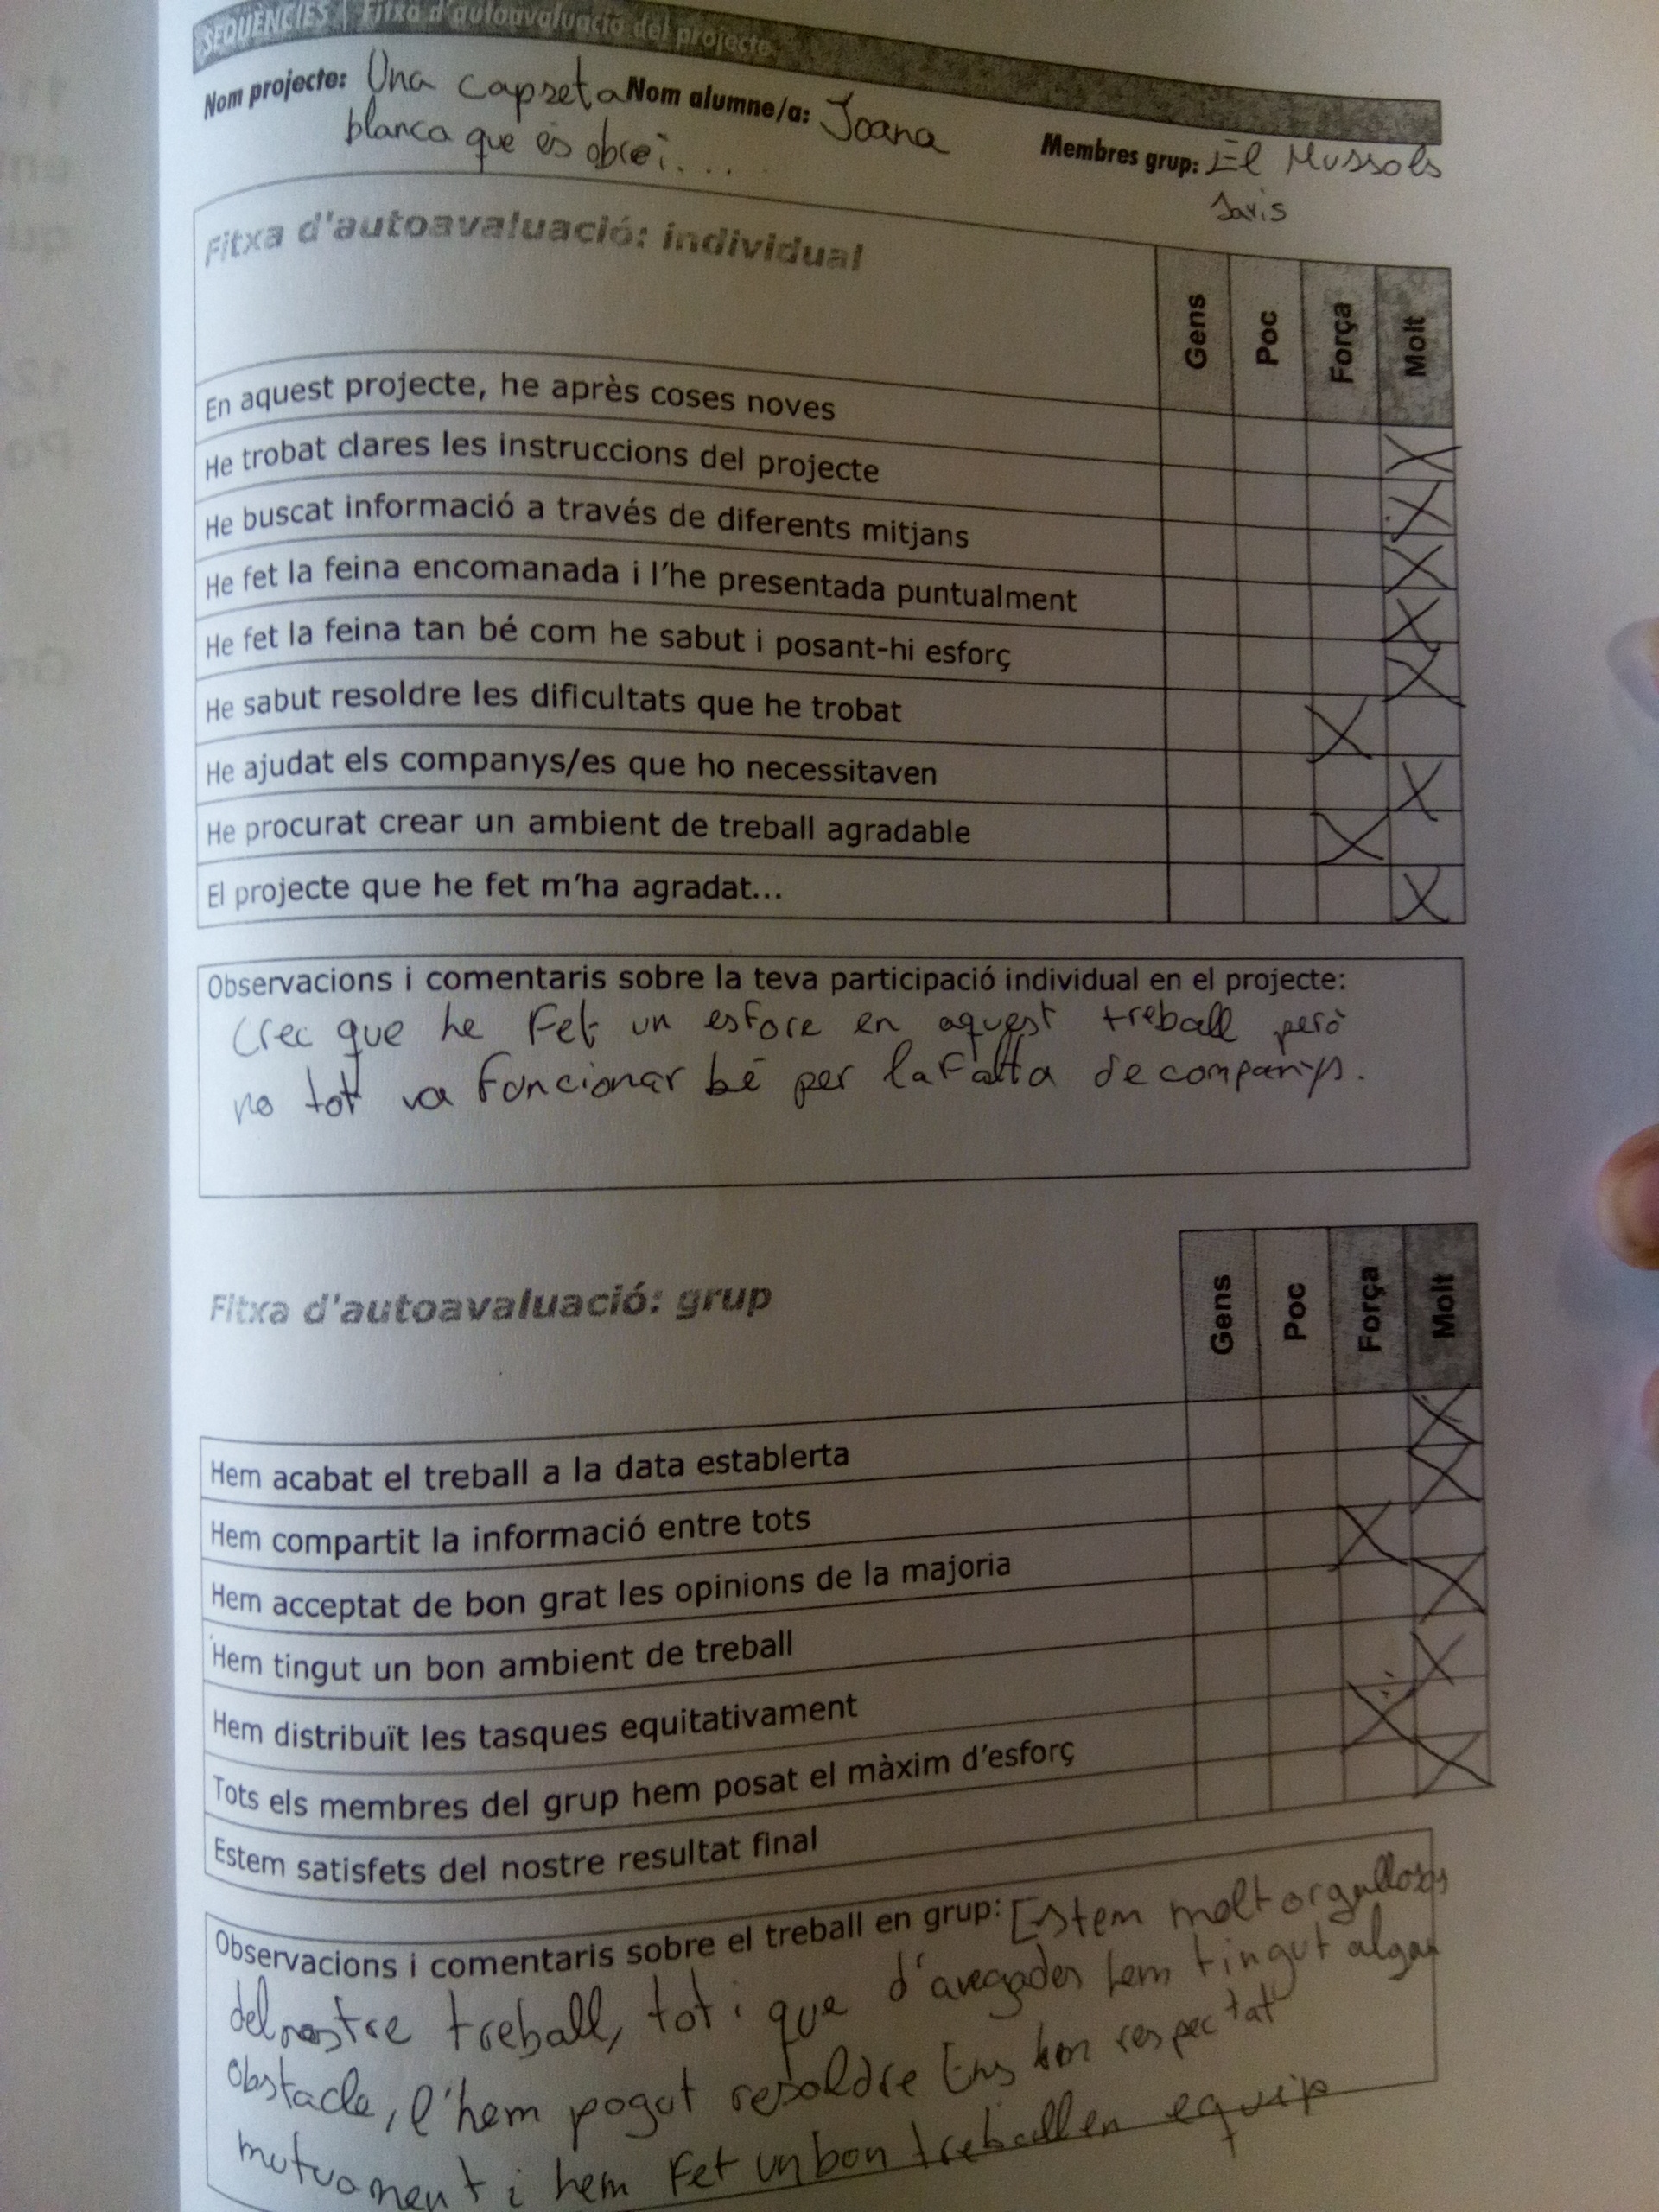 SEQÜÈNCIES | Fitxa d'autoavaluació del projecte
Nom projecte: Una capseta Nom alumne/a: Joana Membres grup: El Mussols
blanca que és obre i....
Savis
Fitxa d'autoavaluació: individual
Gens Poc Força Molt
En aquest projecte, he après coses noves
He trobat clares les instruccions del projecte
He buscat informació a través de diferents mitjans
He fet la feina encomanada i l'he presentada puntualment
He fet la feina tan bé com he sabut i posant-hi esforç
He sabut resoldre les dificultats que he trobat
He ajudat els companys/es que ho necessitaven
He procurat crear un ambient de treball agradable
El projecte que he fet m'ha agradat...
Observacions i comentaris sobre la teva participació individual en el projecte:
Crec que he Fet un esforc en aquest treball però
no tot va funcionar bé per la Falta de companys.
Fitxa d'autoavaluació: grup
Gens Poc Força Molt
Hem acabat el treball a la data establerta
Hem compartit la informació entre tots
Hem acceptat de bon grat les opinions de la majoria
Hem tingut un bon ambient de treball
Hem distribuït les tasques equitativament
Tots els membres del grup hem posat el màxim d'esforç
Estem satisfets del nostre resultat final
Observacions i comentaris sobre el treball en grup: Estem molt orgullosos
del nostre treball, tot i que d'avegades hem tingut algun
obstacle, l'hem pogut resoldre Ens hem respectat
mutuament i hem Fet un bon treball en equip